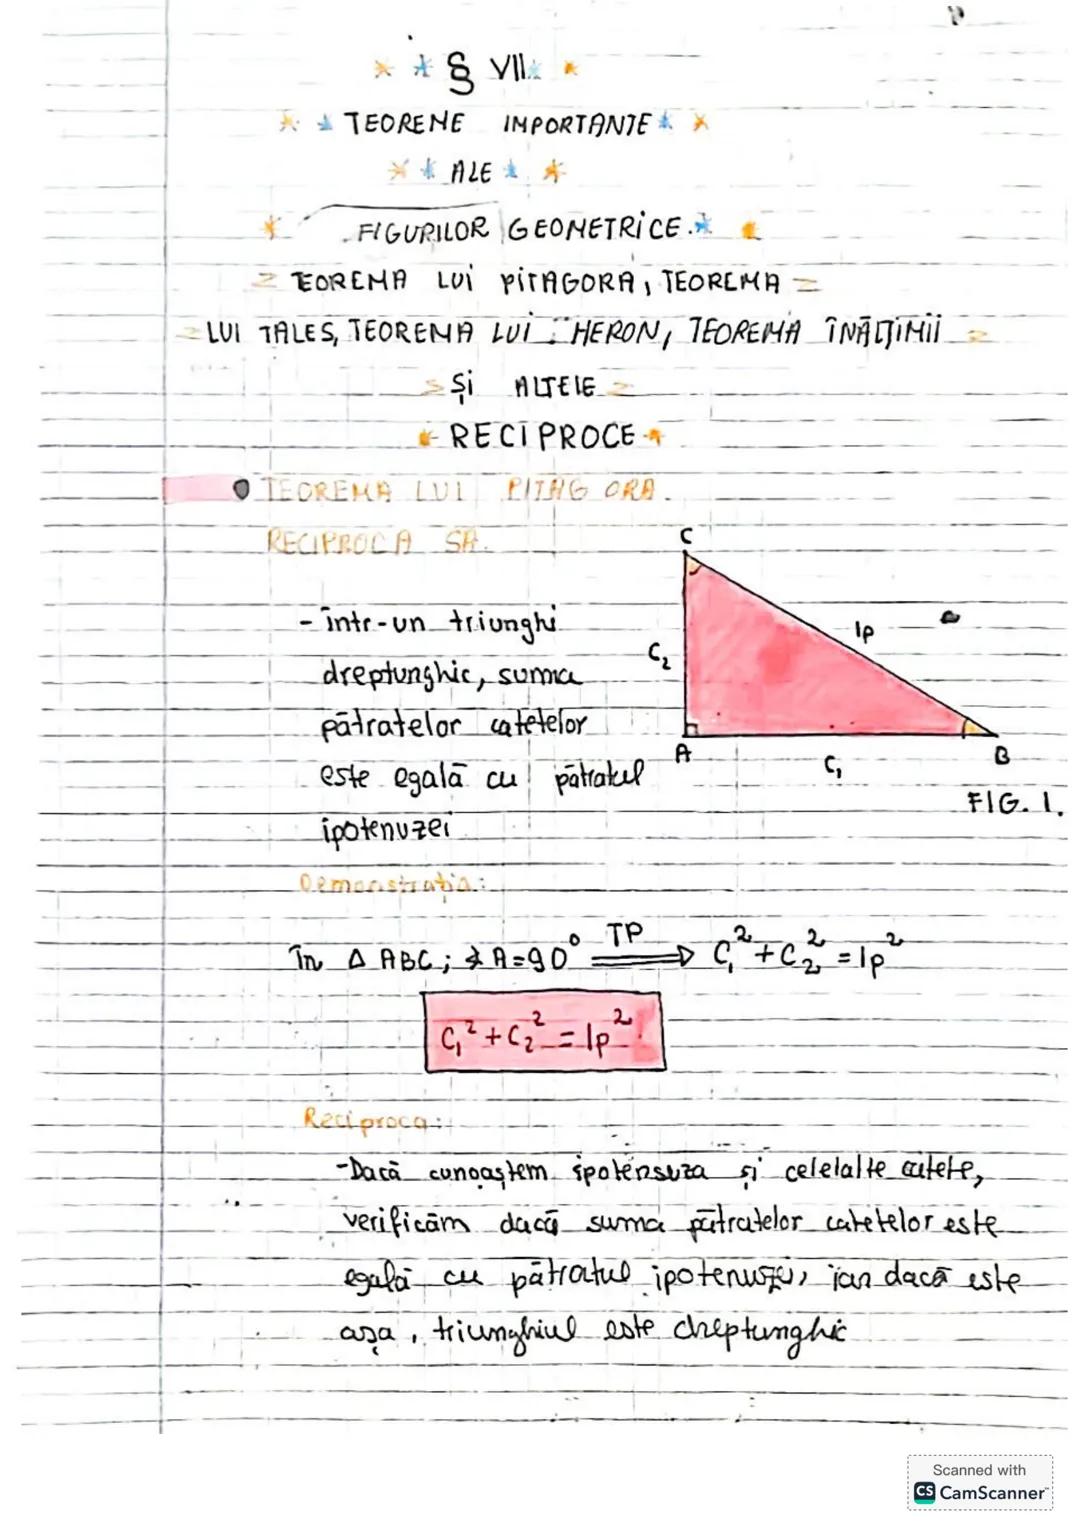 § VII
TEOREME IMPORTANTE
ALE
FIGURILOR GEOMETRICE.
TEOREMA LUI PITAGORA, TEOREMA
LUI TALES, TEOREMA LUI HERON, TEOREMA ÎNĂLȚIMII
ȘI ALTELE
RECIPROCE
TEOREMA LUI PITAGORA.
RECIPROCA SA.
C
- într-un triunghi
Ip
dreptunghic, suma
C₂
pătratelor catetelor
A
B
este egală cu pătratul
C₁
FIG. 1.
ipotenuzei
Demonstrația:
În Δ ABC; ∢ A=90° TP ⟹ C₁²+C₂²=Ip²
C₁²+C₂²=Ip²
Reciproca:
-Dacă cunoaștem ipotensuza și celelalte catete,
verificăm dacă suma pătratelor catetelor este
egală cu pătratul ipotenuzei, iar dacă este
așa, triunghiul este dreptunghic
Scanned with
CS CamScanner